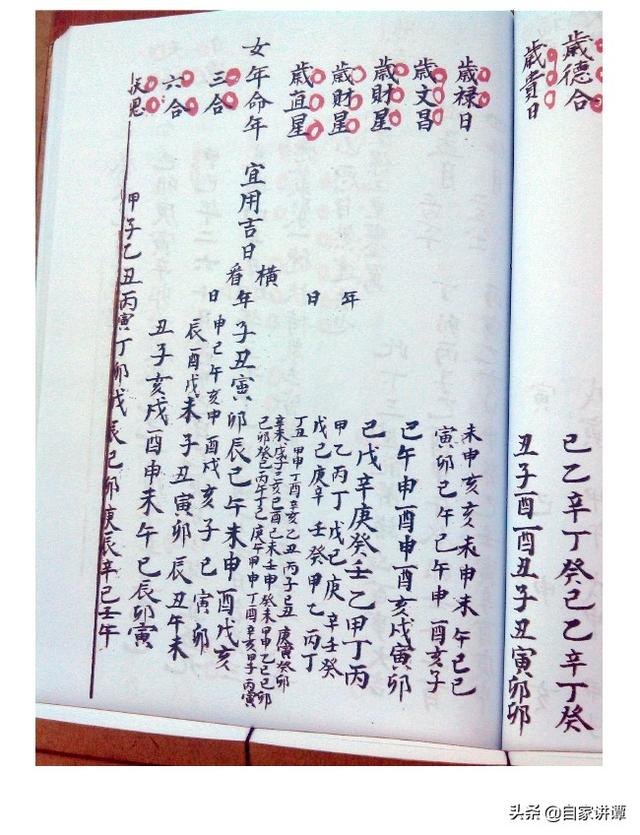 歲德合 己乙辛丁癸己乙辛丁癸
歲貴日 丑子酉酉丑子丑寅卯卯
歲禄日 未申亥亥未申未午巳巳
歲文昌 寅卯巳午申酉亥子
歲財星 巳午申酉申酉亥戌寅卯
歲財星 己戊辛庚癸壬乙甲丁丙
年 甲乙丙丁戊己庚辛壬癸
歲宜星 日 戊己庚辛壬癸甲乙丙丁
橫看
女年命年 宜用吉日 年子丑寅卯辰巳午未申酉戌亥
三合 日申巳午亥申酉戌亥子巳寅卯
辰酉戌未子丑寅卯辰丑午未
六合 丑子亥戌酉申未午巳辰卯寅
天恩 甲子乙丑丙寅丁卯戊辰己卯庚辰辛巳壬午
头条 @自家讲谭